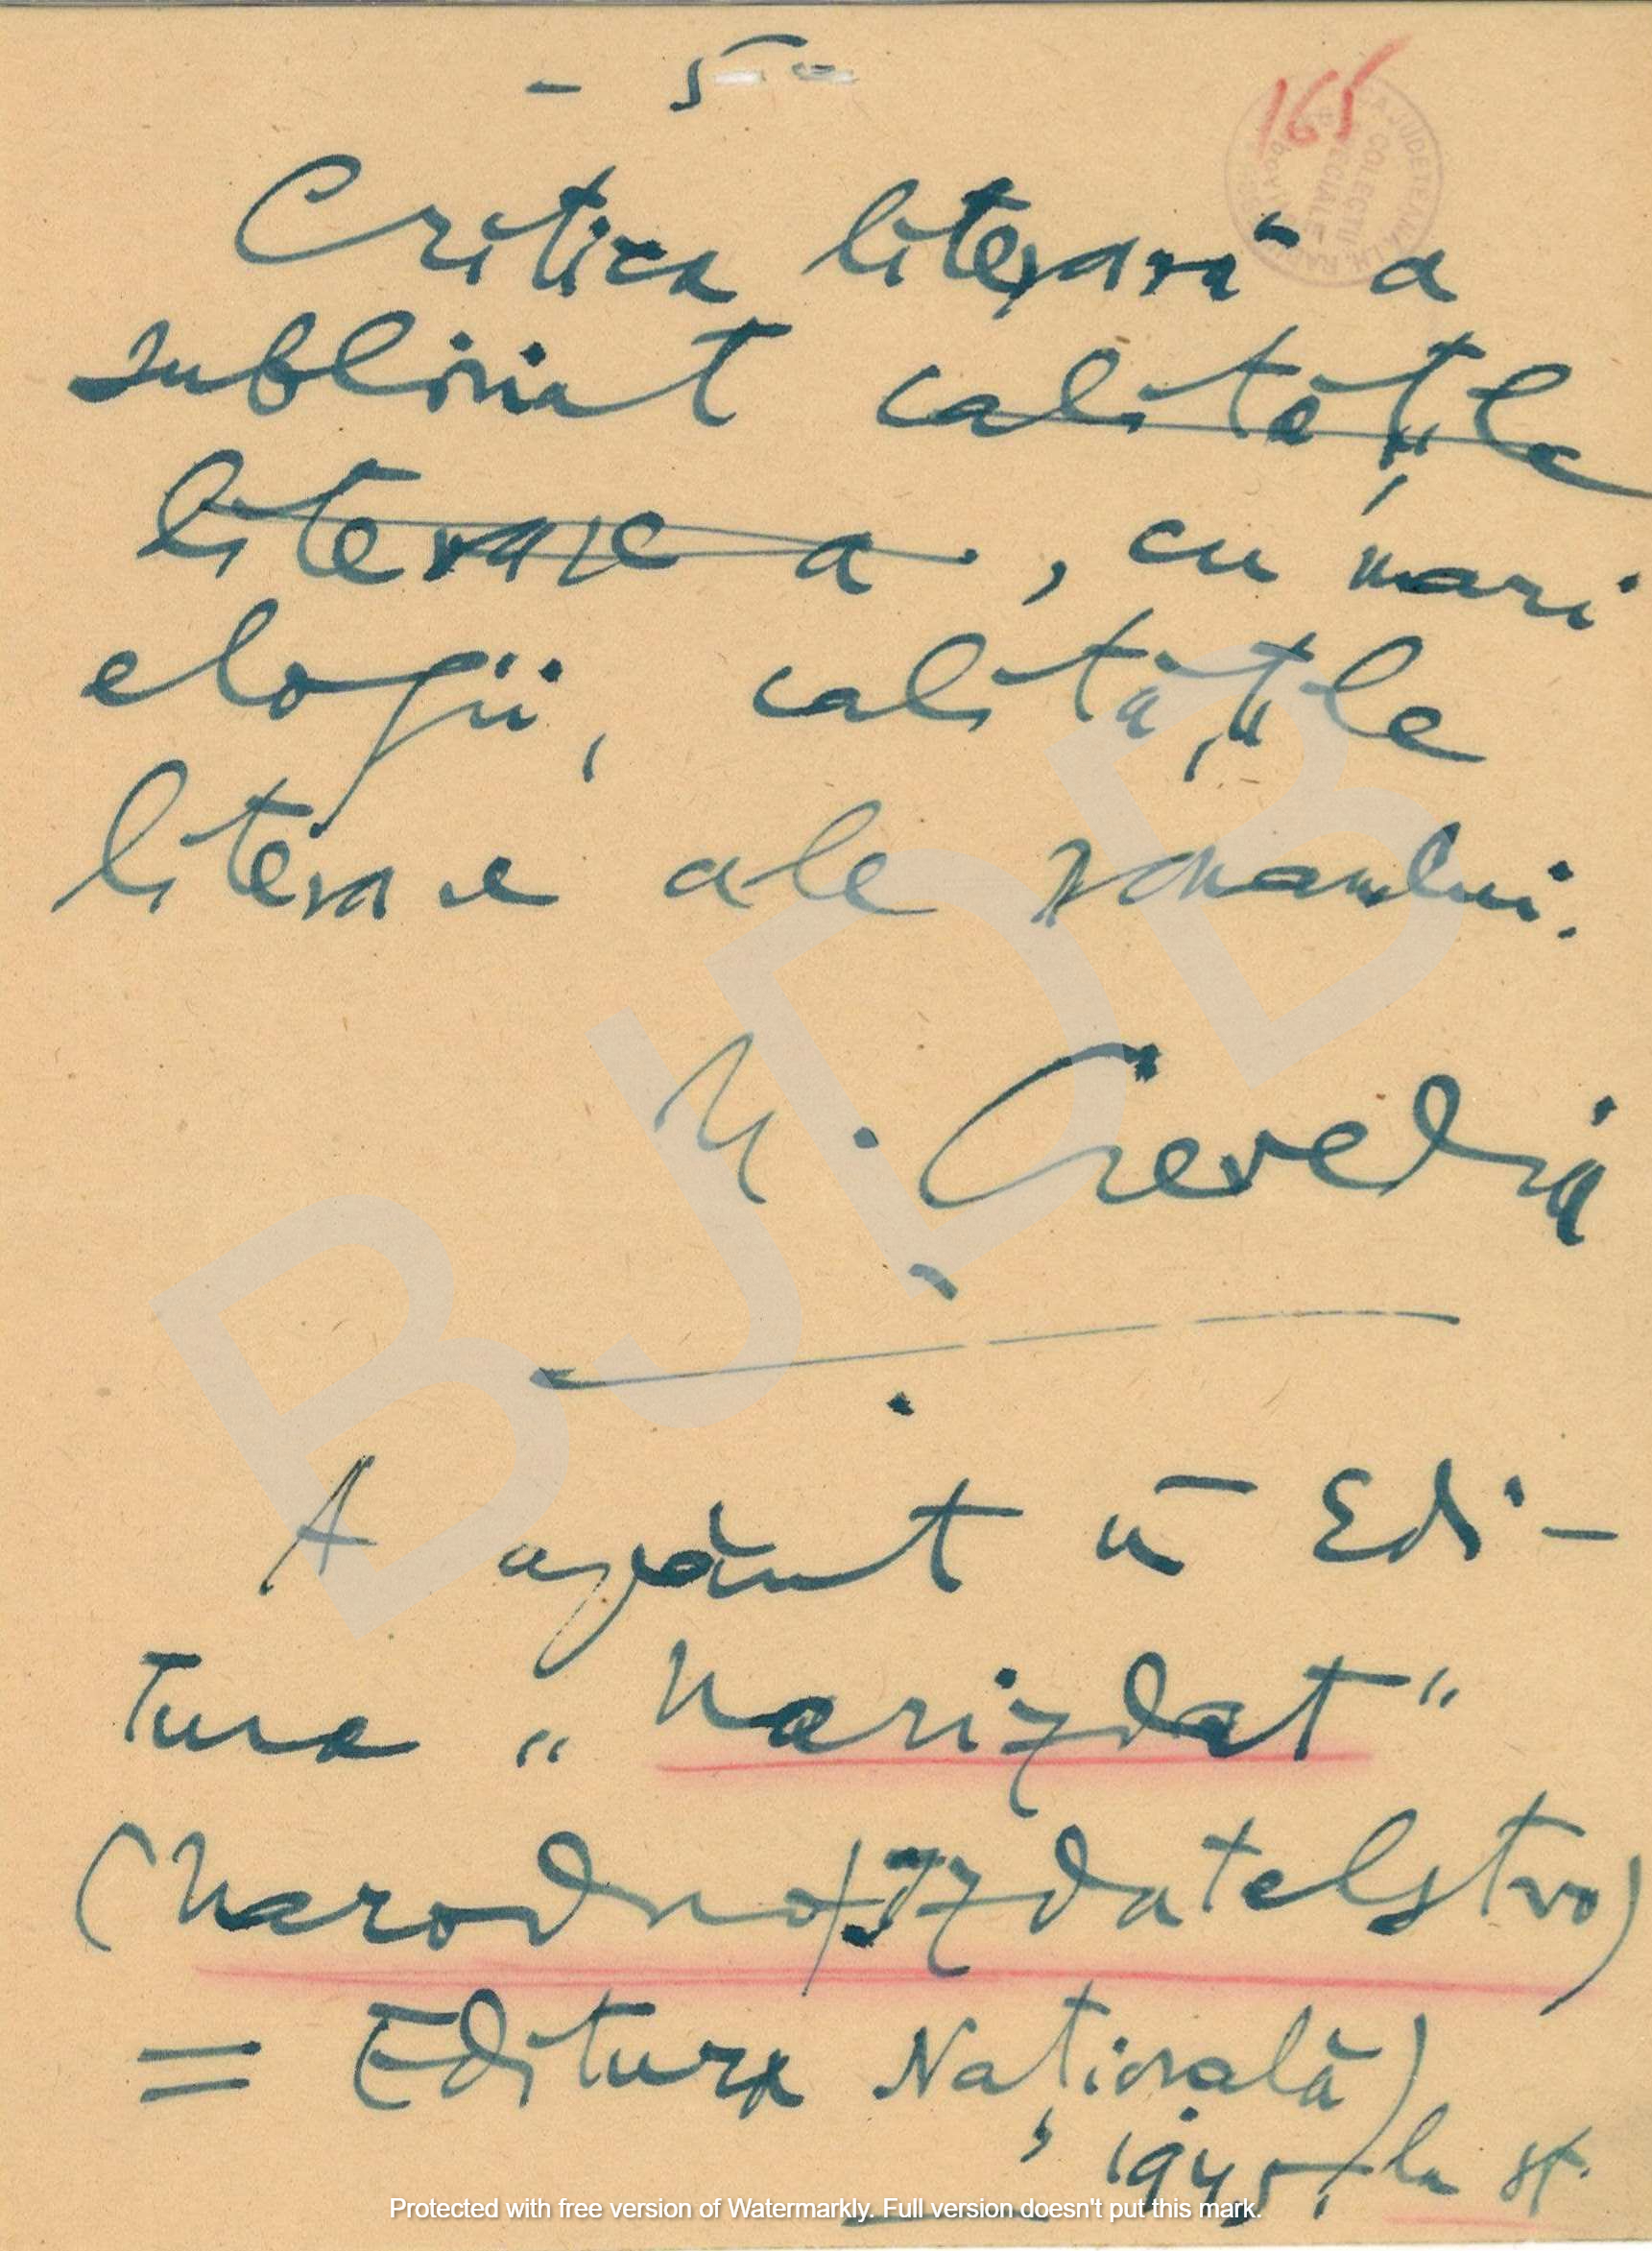 - 5 -
165
Critica literară a
subliniat calitățile
literare a , cu mari
elogii, calitățile
literare ale romanului.
A apărut în Edi-
tura „Narizdat"
(Narodno/Izdatelstvo)
= Editura Națională)
1945, la
BJDB
COLECȚII
SPECIALE
Protected with free version of Watermarkly. Full version doesn't put this mark.